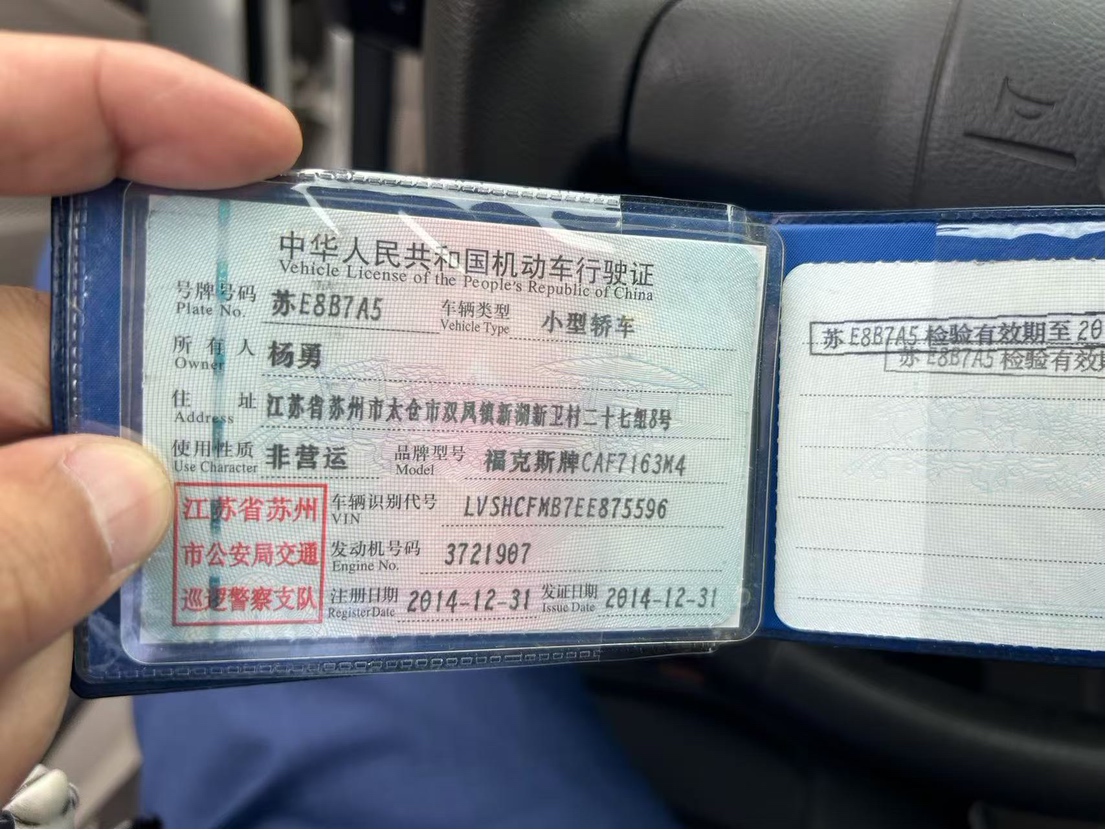 中华人民共和国机动车行驶证
Vehicle License of the People's Republic of China
号牌号码 苏E8B7A5 车辆类型 小型轿车
Plate No. Vehicle Type
所有人 杨勇
Owner
住址 江苏省苏州市太仓市双凤镇新湖新卫村二十七组8号
Address
使用性质 非营运 品牌型号 福克斯牌CAF7163M4
Use Character Model
江苏省苏州
市公安局交通
巡逻警察支队
车辆识别代号 LVSHCFMB7EE875596
VIN
发动机号码 3721907
Engine No.
注册日期 2014-12-31 发证日期 2014-12-31
Register Date Issue Date
苏E8B7A5 检验有效期至 20
苏E8B7A5 检验有效期